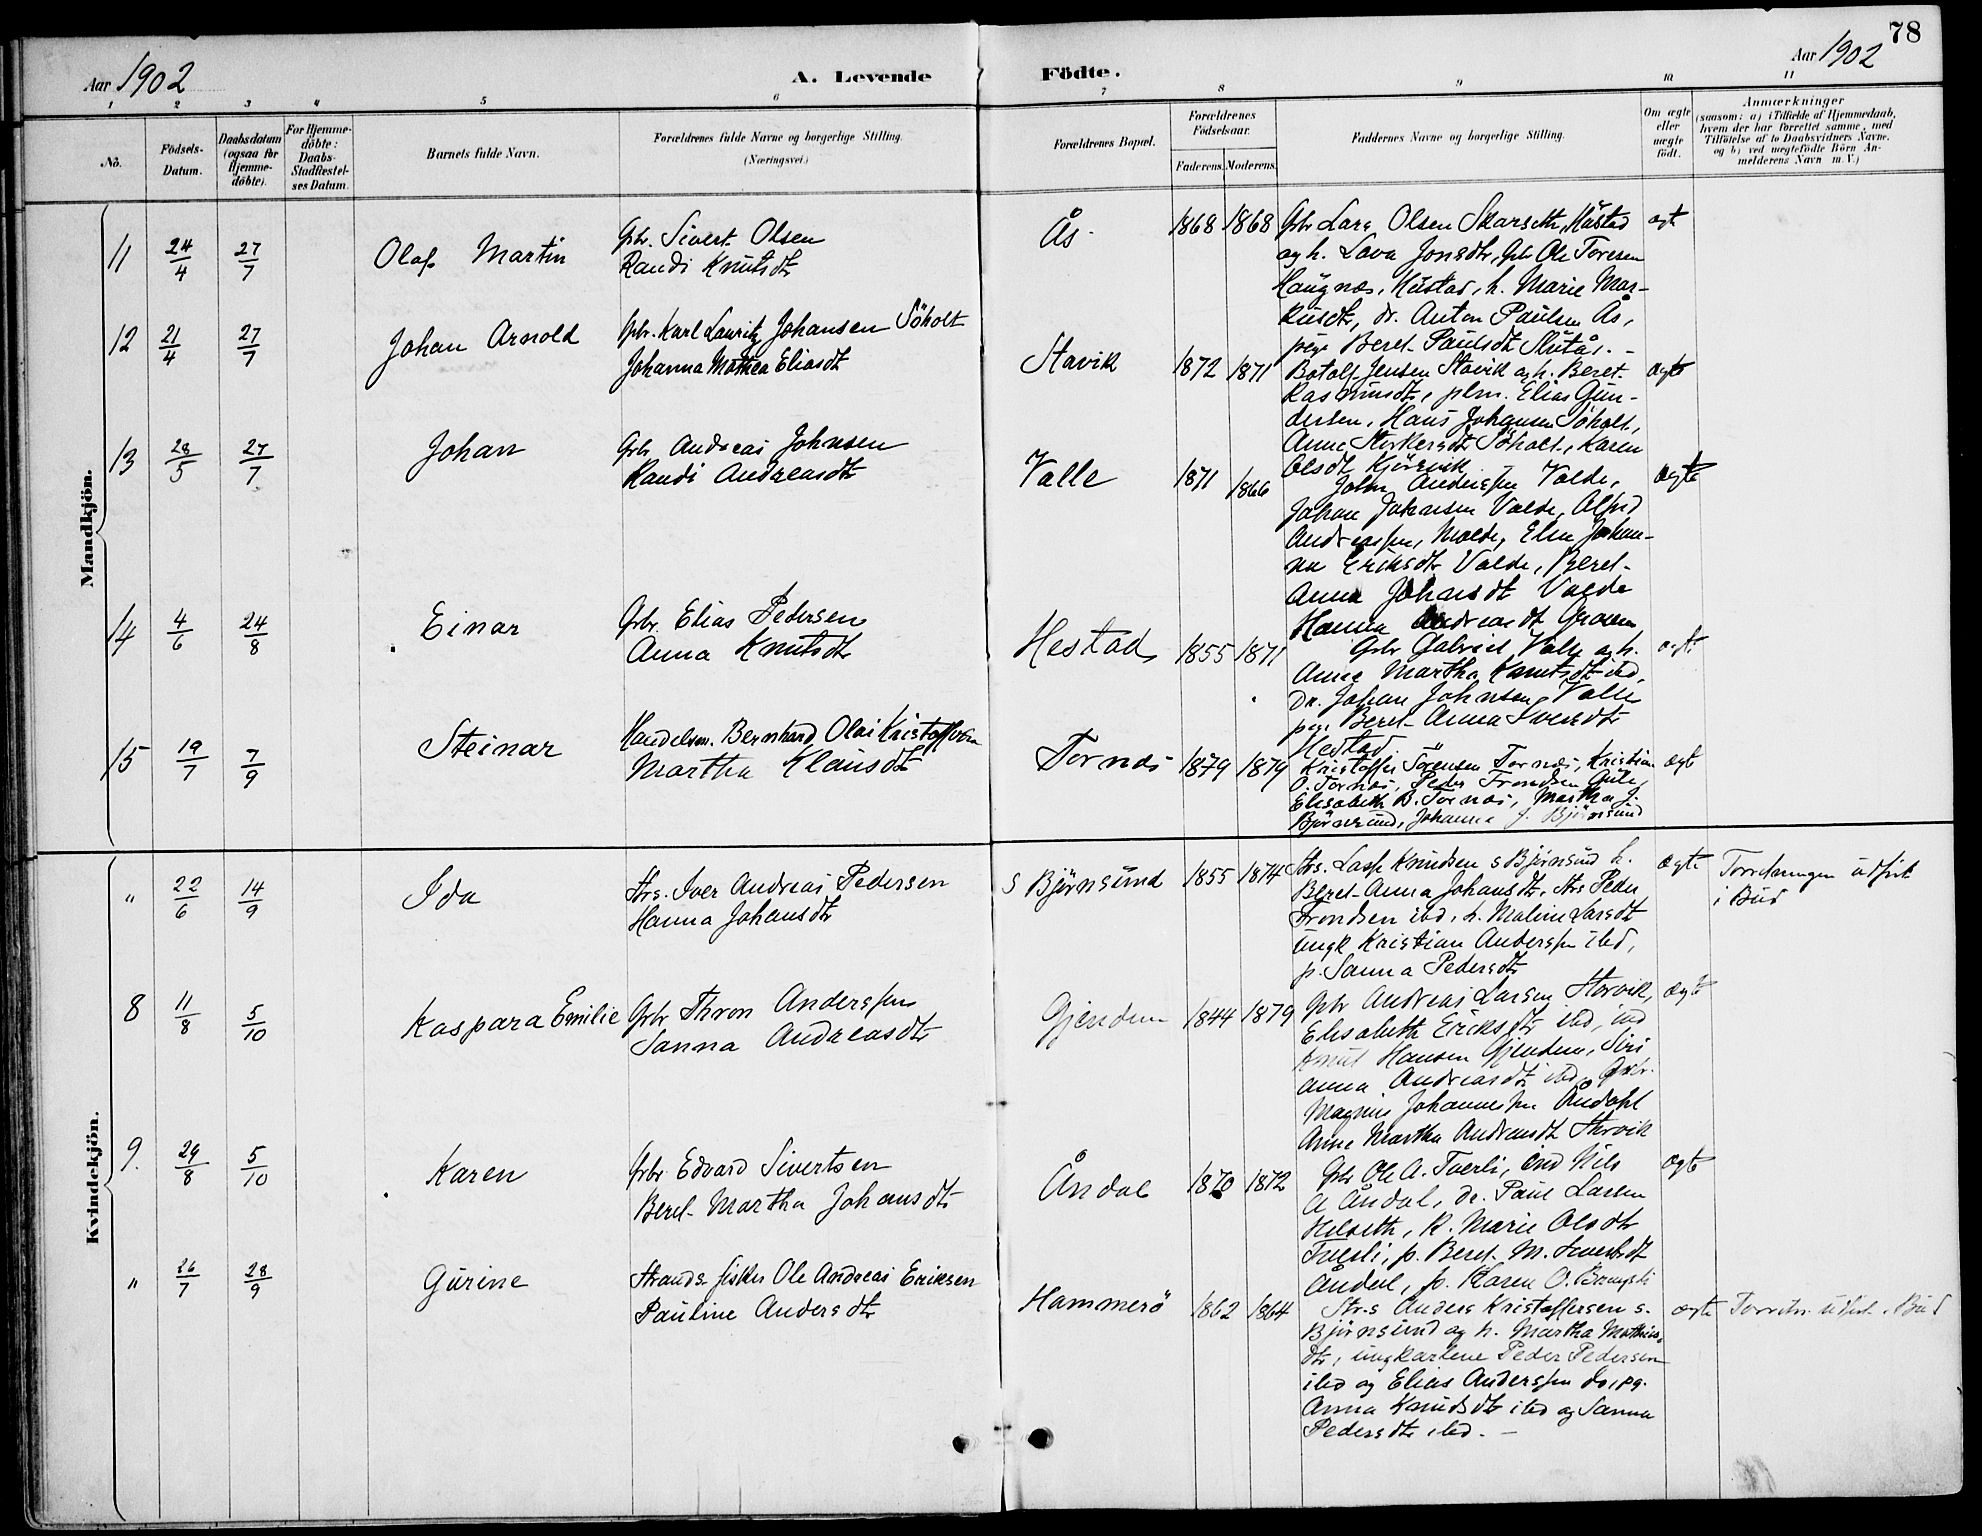 78
Aar 1902
A. Levende Födte.
Aar 1902
1 2 3 4 5 6 7 8 9 10 11
No.
Födsels-Datum.
Daabsdatum (ogsaa for Hjemme-döbte).
For Hjemme-döbte: Daabs-Stadfæstel-ses Datum.
Barnets fulde Navn.
Forældrenes fulde Navne og borgerlige Stilling.
(Næringsvei.)
Forældrenes Bopæl.
Forældrenes Födselsaar.
Faderens. Moderens.
Faddernes Navne og borgerlige Stilling.
Om ægte eller uægte födt.
Anmærkninger
(saasom: a) i Tilfælde af Hjemmedaab, hvem der har forrettet samme, med Tilföielse af to Daabsvidners Navne. og b) ved uægtefödte Börn An-melderens Navn m. V.)
Mandkjön.
11 24/4 27/7 Olaf Martin
Gbr. Sivert Olsen
Randi Knutsdtr
Ås. 1868 1868
Gbr Lars Olsen Skarseth, Hüstad
og h. Lava Jonsdtr, Gbr Ole Toresen
Haugnæs, Hustad, h. Marie Mar-
kusdtr, dr. Anton Paulsen Ås,
pige Beret Paulsdt
ægt
12 21/4 27/7 Johan Arnold
Gbr. Karl Lauritz Johansen Söholt
Johanna Mathea Eliasdt
Stavik 1872 1871
Botolf Jensen Stavik og h. Beret
Rasmusdtr, plm. Elias Gun-
dersen, Hans Johansen Söholt,
Anne Söholt, Karen
Olsdt
ægte
13 28/5 27/7 Johan
Gbr Andreas Johnsen
Randi Andreasdtr
Valle 1871 1866
John Anderssen Valde,
Johan Johnsen Valde, Alfred
Andreassen, Molde, Elen Johan-
na Eriksdtr Valde, Beret-
Anna Johansdt Valde
Hanna Andreasdt
ægte
14 4/6 24/8 Einar
Gbr. Elias Pedersen
Anna Knutsdtr
Hestad 1855 1871
Gbr Gabriel Valle og h.
Anne Martha Knutsdt ibd,
Dr. Johan Johnsen Valle
pige Beret Anna Iversdtr
Hestad
ægte
15 19/7 7/9 Steinar
Handelsm. Bernhard Olai Kristoffersen
Martha Klausdt
Tornæs 1879 1879
Kristoffer Sörensen Tornæs, Kristian
O. Tornæs, Peder Trondsen
Elisabeth B. Tornæs, Martha J.
Björnsund, Johanna J. Björnsund
ægte
Kvindekjön.
" 22/6 14/9 Ida
Strs. Iver Andreas Pedersen
Hanna Johansdtr
S Björnsund 1855 1874
Strs. Lasse Knudsen s Björnsund h.
Beret Anna Johansdtr, Strs Peder
Trondsen ibd, h. Maline Larsdt
ungk Kristian Anderssen ibd,
p. Sanna Pedersdtr
ægte
Forretningen udført
i Bud
8 11/8 5/10 Kaspara Emilie
Gbr Thron Anderssen
Sanna Andreasdtr
Gjendem 1844 1879
Gbr Andreas Larsen Storvik,
Elisabeth Eriksdtr ibd, ind
Knut Hansen Gjendem, Siri
anna Andreasdt ibd, Gbr.
Magnus Johannessen Åndahl
Anne Martha Andreasdt Storvik
ægte
9. 29/8 5/10 Karen
Gbr Edvard Sivertsen
Beret Martha Johansdtr
Åndal 1870 1872
Gbr Ole A. Tverli, ind Nils
A Åndal, dr. Paul Larsen
Helseth, K. Marie Olsdtr
Tverli, p. Beret M. Sivertsdt
Åndal, p. Karen O.
ægte
" 26/7 28/9 Gurine
Strands. fisker Ole Andreas Eriksen
Pauline Andersdtr
Hammerö 1862 1864
Str.s Anders Kristoffersen s.
Björnsund og h. Martha Mathias-
dtr, ungkarlene Peder Pedersen
ibd og Elias Anderssen do, pg.
Anna Knudsdtr ibd og Sanna
Pedersdtr ibd. -
ægte
Forretn. udført i Bud